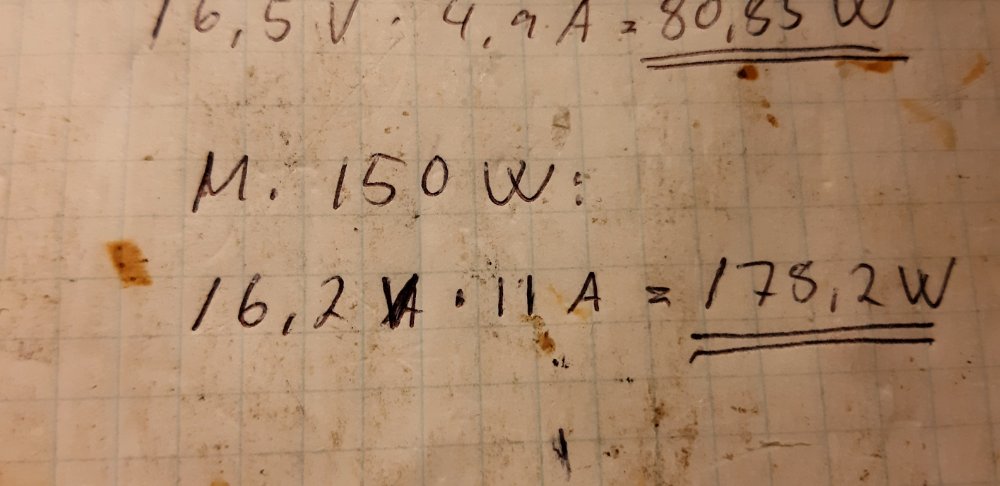 16,5 V · 4,9 A = 80,85 W
M. 150 W:
16,2 V · 11 A = 178,2 W